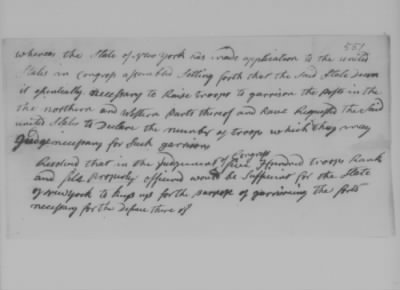 551
whereas the State of New York has made application to the united
States in Congress assembled Setting forth that the Said State deem
it essentially necessary to Raise troops to garrison the posts in the
the northern and Western Parts thereof and have Requested the Said
united States to Declare the number of troops which they may
Judge necessary for Such garrison
Resolved that in the Judgment of Congress five Hundred troops Rank
and file Properly officered would be Sufficient for the State
of New York to keep up for the purpose of garrisoning the posts
necessary for the defence there of